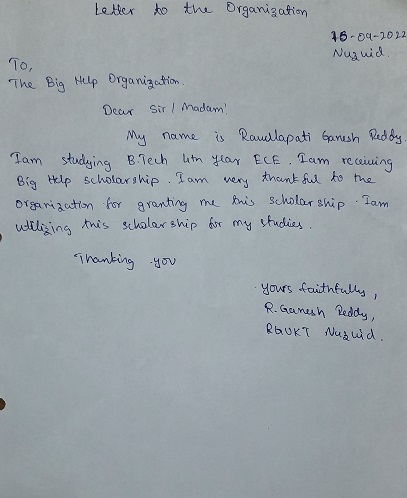 Letter to the Organization
16-09-2022
Nuzvid.
To,
The Big Help Organization.
Dear Sir / Madam!
My name is Ravullapati Ganesh Reddy.
Iam studying B.Tech 4th year ECE. Iam receiving
Big Help scholarship. Iam very thankful to the
organization for granting me this scholarship. Iam
utilizing this scholarship for my studies.
Thanking you
yours faithfully,
R. Ganesh Reddy,
RGUKT Nuzvid.